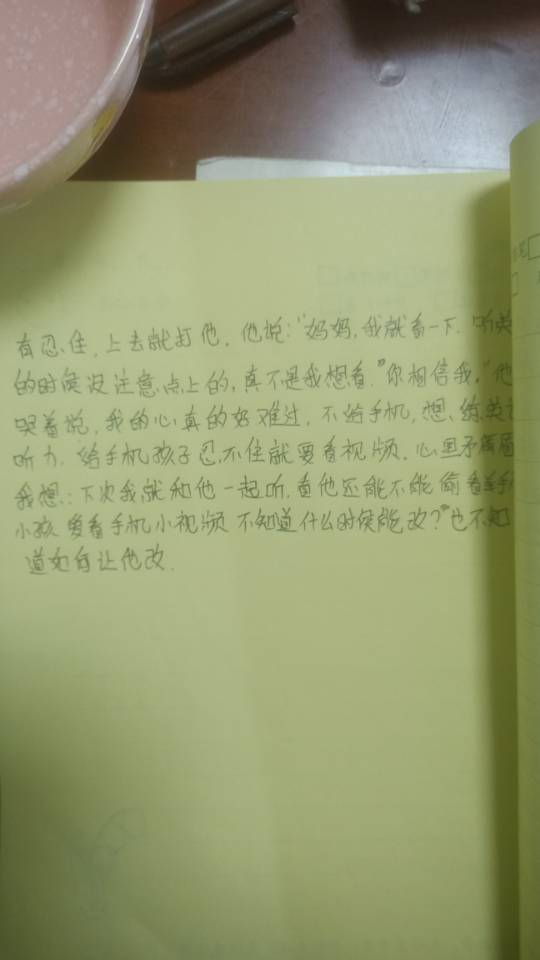 有忍住，上去就打他，他说："妈妈，我就看一下，听英
的时候没注意点上的，真不是我想看。"你相信我。"他
哭着说，我的心真的好难过，不给手机，想练英语
听力，给手机孩子忍不住就要看视频，心里矛盾
我想：下次我就和他一起听，看他还能不能偷看手
小孩爱看手机小视频不知道什么时候能改？"也不知
道如何让他改．